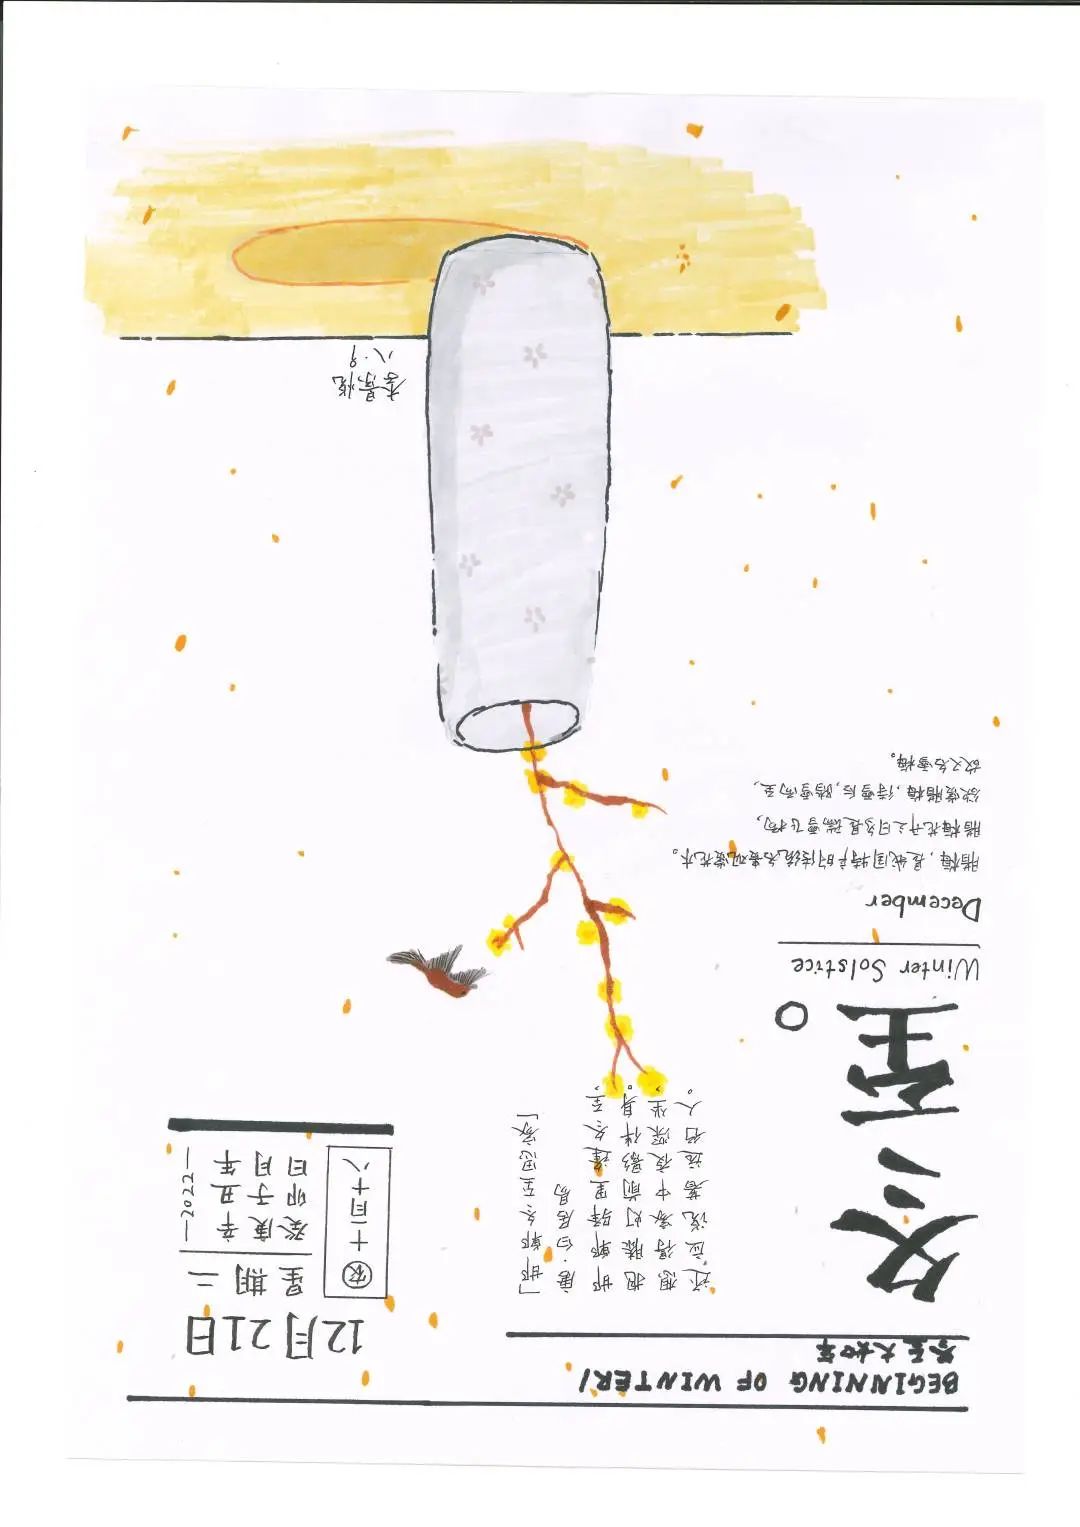 BEGINNING OF WINTER/
冬至大如年
冬至。
Winter Solstice
December
腊梅，是我国特产的传统名贵观赏花木。
腊梅花开之日多是瑞雪飞扬，
欲赏腊梅，待雪后，踏雪而至，
故又名雪梅。
「邯郸冬至思家」
唐·白居易
邯郸驿里逢冬至，
抱膝灯前影伴身。
想得家中夜深坐，
还应说着远名人。
12月21日
星期二
—2022—
辛丑年
庚子月
癸卯日
农 十一月十八
李景悦
八.9